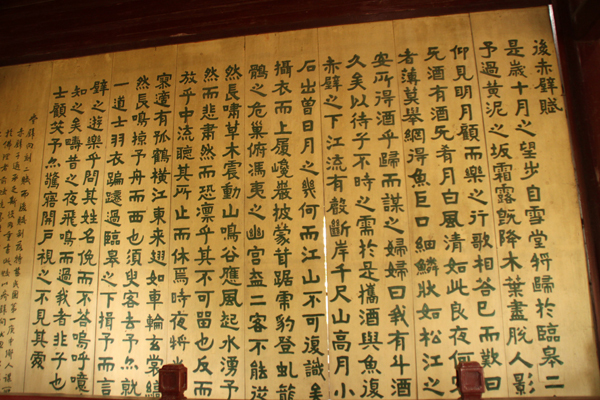 後赤壁賦
是歲十月之望步自雪堂將歸於臨皋二
予過黃泥之坂霜露既降木葉盡脫人影
仰見明月顧而樂之行歌相答已而歎曰
无酒有酒无肴月白風清如此良夜何
者薄莫舉網得魚巨口細鱗狀如松江之
安所得酒乎歸而謀之婦婦曰我有斗酒
久矣以待子不時之需於是攜酒與魚復
赤壁之下江流有聲斷岸千尺山高月小
石出曾日月之幾何而江山不可復識矣
攝衣而上履巉巖披蒙茸踞虎豹登虬龍
鶻之危巢俯馮夷之幽宮蓋二客不能從
然長嘯草木震動山鳴谷應風起水湧予
然而悲肅然而恐凜乎其不可留也反而
放乎中流聽其所止而休焉時夜將
寂寥有孤鶴橫江東來翅如車輪玄裳縞
然長鳴掠予舟而西也須臾客去予亦就
一道士羽衣蹁躚過臨皋之下揖予而言
壁之遊樂乎問其姓名俛而不答嗚呼噫
知之矣疇昔之夜飛鳴而過我者非子也
士顧笑予亦驚寤開戶視之不見其處
赤壁向刻二賦而後賦